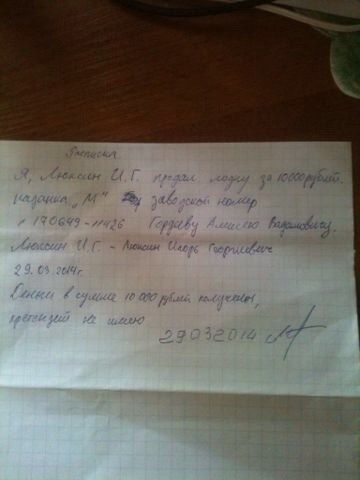 Расписка
Я, Люксин И.Г. продал лодку за 10000рублей.
казанка „М" заводской номер
170649-11426 Гордеву Алексею Вадимовичу
Люксин И.Г. - Люксин Игорь Георгиевич
29.03.2014г
Деньги в сумме 10 000 рублей получены,
претензий не имею
29032014